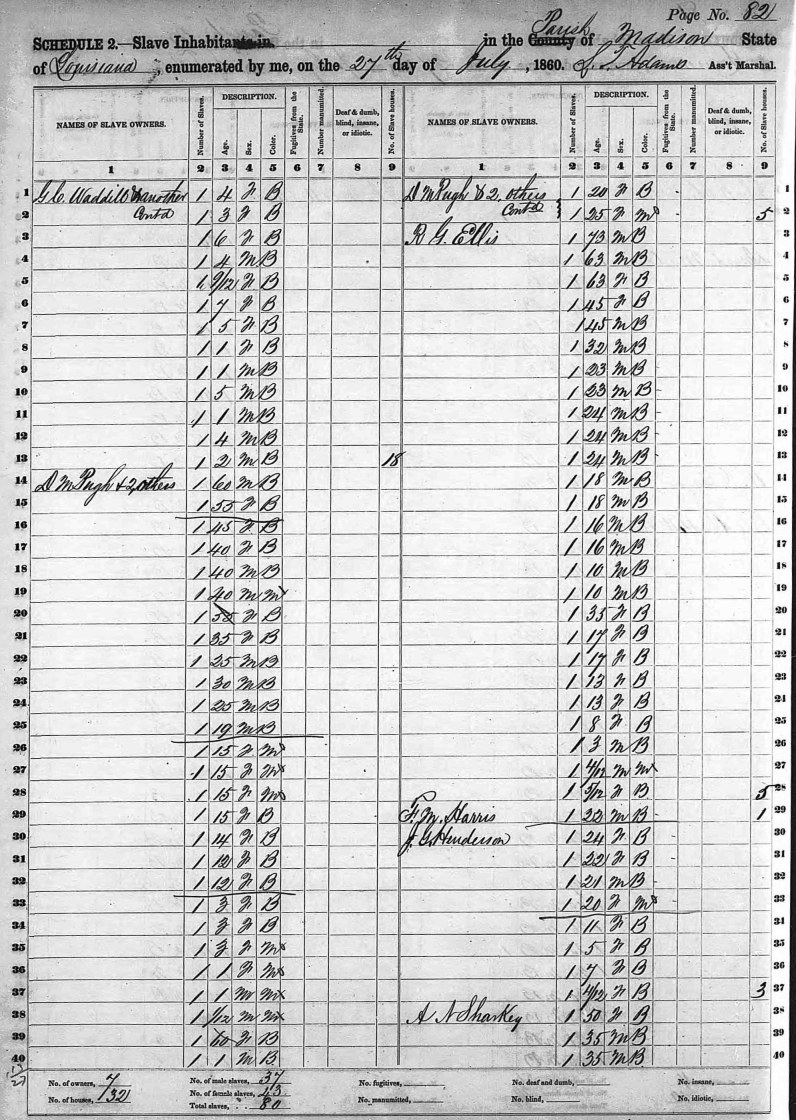 Page No. 82
SCHEDULE 2.—Slave Inhabitants in the Parish County of Madison State
of Louisiana, enumerated by me, on the 27th day of July, 1860. Ass't Marshal.
NAMES OF SLAVE OWNERS. Number of Slaves. DESCRIPTION. Age. Sex. Color. Fugitives from the State. Number manumitted. Deaf & dumb, blind, insane, or idiotic. No. of Slave houses. NAMES OF SLAVE OWNERS. Number of Slaves. DESCRIPTION. Age. Sex. Color. Fugitives from the State. Number manumitted. Deaf & dumb, blind, insane, or idiotic. No. of Slave houses.
1 2 3 4 5 6 7 8 9 1 2 3 4 5 6 7 8 9
1 G. C. Waddill & another 1 4 F B D M Pugh & 2 others 1 20 F B 1
2 Contd 1 3 F B Contd 1 25 F M 5 2
3 1 6 F B R G. Ellis 1 73 M B 3
4 1 4 M B 1 63 M B 4
5 1 9/12 F B 1 63 F B 5
6 1 7 F B 1 45 F B 6
7 1 5 F B 1 45 M B 7
8 1 1 F B 1 32 M B 8
9 1 1 M B 1 23 M B 9
10 1 5 M B 1 23 M B 10
11 1 1 M B 1 24 M B 11
12 1 4 M B 1 24 M B 12
13 1 2 M B 18 1 24 M B 13
14 D M Pugh & 2 others 1 60 M B 1 18 M B 14
15 1 55 F B 1 18 M B 15
16 1 45 F B 1 16 M B 16
17 1 40 F B 1 16 M B 17
18 1 40 M B 1 10 M B 18
19 1 40 M M 1 10 M B 19
20 1 F B 1 35 F B 20
21 1 35 F B 1 17 F B 21
22 1 25 M B 1 17 F B 22
23 1 30 M B 1 13 F B 23
24 1 25 M B 1 13 F B 24
25 1 19 M B 1 8 F B 25
26 1 15 F M 1 3 M B 26
27 1 15 F M 1 4/12 M M 27
28 1 15 F M 1 5/12 F B 5 28
29 1 15 F B F. M. Harris 1 22 M B 1 29
30 1 14 F B J. G. Henderson 1 24 F B 30
31 1 12 F B 1 22 F B 31
32 1 12 F B 1 21 M B 32
33 1 3 F B 1 20 F M 33
34 1 3 F B 1 11 F B 34
35 1 3 F M 1 5 F B 35
36 1 1 F M 1 7 F B 36
37 1 1 M M 1 4/12 F B 3 37
38 1 1/12 M M A N Sharkey 1 50 F B 38
39 1 60 F B 1 35 M B 39
40 1 1 M B 1 35 M B 40
No. of owners, 7 No. of male slaves, 37 No. fugitives, No. deaf and dumb, No. insane,
No. of houses, 132 No. of female slaves, 43 No. manumitted, No. blind, No. idiotic,
Total slaves, 80